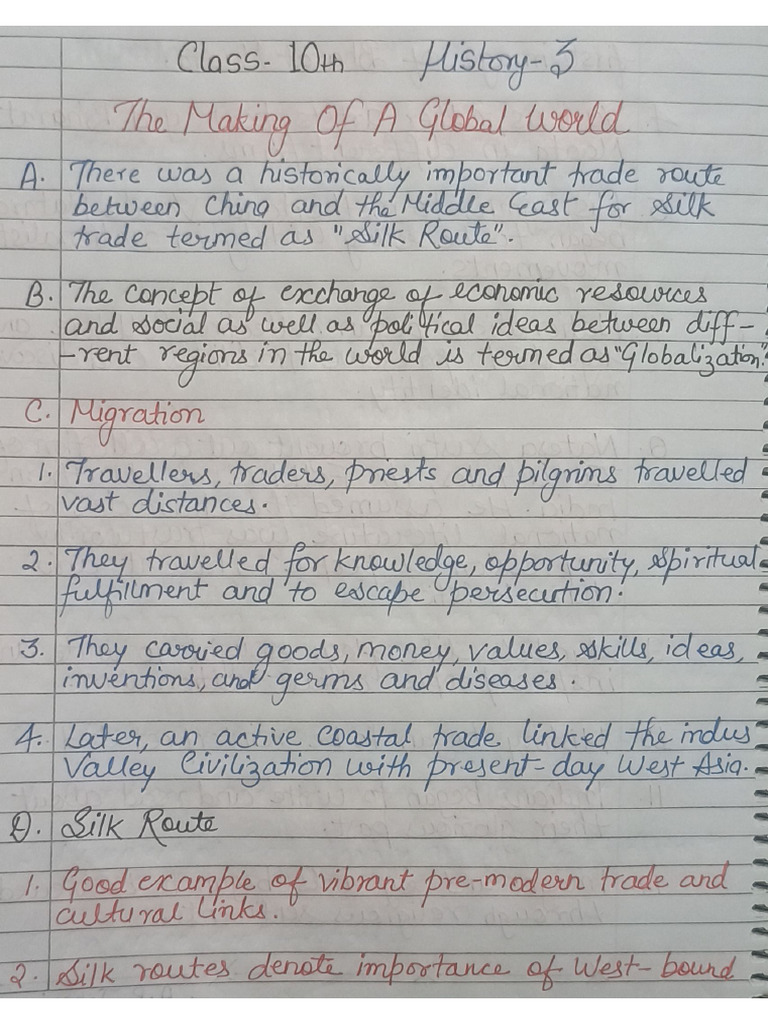 Class- 10th History-3
The Making Of A Global World
A. There was a historically important trade route
between China and the Middle East for Silk
trade termed as "Silk Route".
B. The concept of exchange of economic resources
and social as well as political ideas between diff-
-rent regions in the world is termed as "Globalization."
C. Migration
1. Travellers, traders, priests and pilgrims travelled
vast distances.
2. They travelled for knowledge, opportunity, spiritual
fulfillment and to escape persecution.
3. They carried goods, money, values, skills, ideas,
inventions, and germs and diseases.
4. Later, an active coastal trade linked the indus
Valley Civilization with present-day West Asia.
D. Silk Route
1. Good example of vibrant pre-modern trade and
cultural links.
2. Silk routes denote importance of West-bound